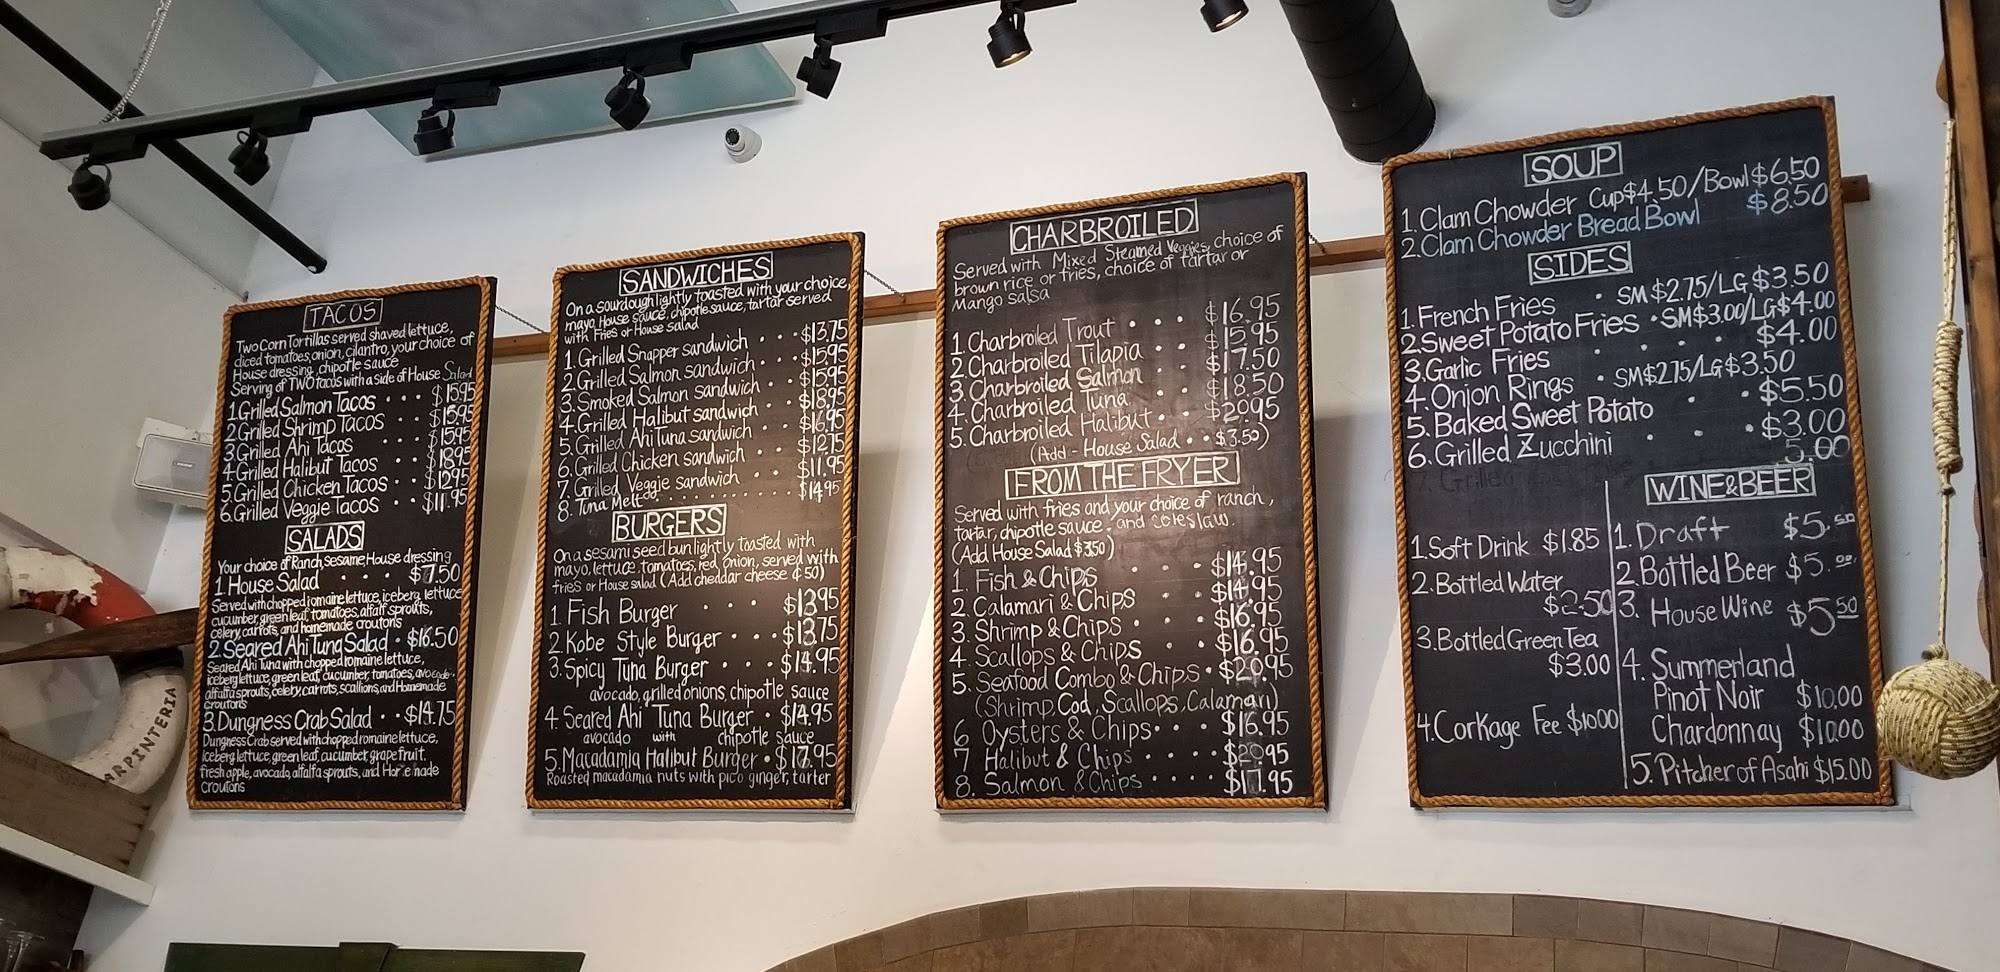 TACOS
Two Corn Tortillas served shaved lettuce,
diced tomatoes, onion, cilantro, your choice of
House dressing, chipotle sauce
Serving of TWO tacos with a side of House Salad
1. Grilled Salmon Tacos . . . $15.95
2. Grilled Shrimp Tacos . . . $15.95
3. Grilled Ahi Tacos . . . $15.95
4. Grilled Halibut Tacos . . . $18.95
5. Grilled Chicken Tacos . . . $12.95
6. Grilled Veggie Tacos . . . $11.95
SALADS
Your choice of Ranch, Sesame House dressing
1. House Salad . . . . $7.50
Served with chopped romaine lettuce, iceberg lettuce
cucumber, green leaf, tomatoes, alfalfa sprouts,
celery, carrots, and homemade croutons
2. Seared Ahi Tuna Salad . $16.50
Seared Ahi Tuna with chopped romaine lettuce,
iceberg lettuce, green leaf, cucumber, tomatoes, avocado,
alfalfa sprouts, celery, carrots, scallions, and Homemade
croutons
3. Dungness Crab Salad . . $14.75
Dungness Crab served with chopped romaine lettuce,
Iceberg lettuce, green leaf, cucumber, grapefruit,
fresh apple, avocado, alfalfa sprouts, and Homemade
croutons
SANDWICHES
On a sourdough lightly toasted with your choice,
mayo, House sauce, chipotle sauce, tartar served
with Fries or House salad
1. Grilled Snapper sandwich . . $13.75
2. Grilled Salmon sandwich . . $15.95
3. Smoked Salmon sandwich . . $15.95
4. Grilled Halibut sandwich . . $18.95
5. Grilled Ahi Tuna sandwich . . $16.95
6. Grilled Chicken sandwich . . $12.75
7. Grilled Veggie sandwich . . $11.95
8. Tuna Melt . . . . . . . . . . . . $14.95
BURGERS
On a sesami seed bun lightly toasted with
mayo, lettuce, tomatoes, red onion, served with
fries or House salad (Add cheddar cheese ¢50)
1. Fish Burger . . . $13.95
2. Kobe Style Burger . . . $13.75
3. Spicy Tuna Burger . . . $14.95
avocado, grilled onions, chipotle sauce
4. Seared Ahi Tuna Burger . $14.95
avocado with chipotle sauce
5. Macadamia Halibut Burger . $18.95
Roasted macadamia nuts with pico ginger, tarter
CHARBROILED
Served with Mixed Steamed Veggies, choice of
brown rice or fries, choice of tartar or
Mango salsa
1. Charbroiled Trout . . . $16.95
2. Charbroiled Tilapia . . . $15.95
3. Charbroiled Salmon . . . $17.50
4. Charbroiled Tuna . . . $18.50
5. Charbroiled Halibut . . $20.95
(Add - House Salad . . $3.50)
FROM THE FRYER
Served with fries and your choice of ranch,
tartar, chipotle sauce - and coleslaw.
(Add House Salad $3.50)
1. Fish & Chips . . . . $14.95
2. Calamari & Chips . . . $14.95
3. Shrimp & Chips . . . . $16.95
4. Scallops & Chips . . . $16.95
5. Seafood Combo & Chips . $20.95
(Shrimp, Cod, Scallops, Calamari)
6 Oysters & Chips . . . $16.95
7 Halibut & Chips . . . $20.95
8. Salmon & Chips . . . . $17.95
SOUP
1. Clam Chowder Cup $4.50/Bowl $6.50
2. Clam Chowder Bread Bowl $8.50
SIDES
1. French Fries . SM $2.75/LG $3.50
2. Sweet Potato Fries . SM $3.00/LG $4.00
3. Garlic Fries . . . . . $4.00
4. Onion Rings . SM $2.75/LG $3.50
5. Baked Sweet Potato . . $5.50
6. Grilled Zucchini . . . $3.00
7. Grilled 5.00
1. Soft Drink $1.85
2. Bottled Water
$2.50
3. Bottled Green Tea
$3.00
4. Corkage Fee $10.00
WINE & BEER
1. Draft $5.50
2. Bottled Beer $5.00
3. House Wine $5.50
4. Summerland
Pinot Noir $10.00
Chardonnay $10.00
5. Pitcher of Asahi $15.00
ARPINTERIA